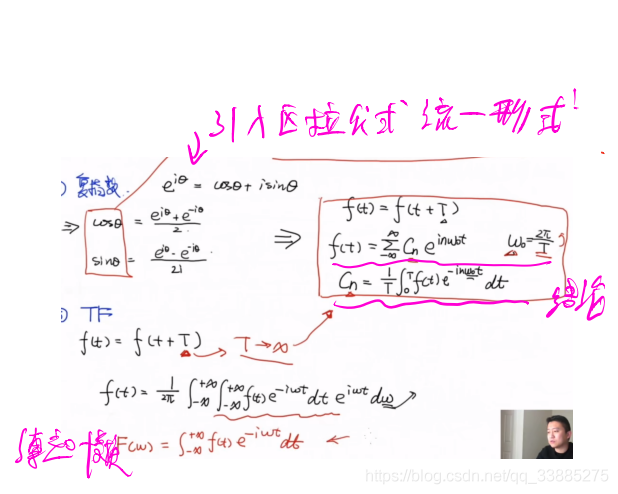 引入欧拉公式 统一形式!
) 复指数. e^{iθ} = cosθ + isinθ
⇒ cosθ = \frac{e^{iθ}+e^{-iθ}}{2}.
sinθ = \frac{e^{iθ}-e^{-iθ}}{2i}.
⇒
f(t) = f(t+T)
f(t) = \sum_{-∞}^{∞} C_n e^{inω_0t} ω_0 = \frac{2π}{T}
C_n = \frac{1}{T} ∫_0^T f(t) e^{-inω_0t} dt
结论
) TF
f(t) = f(t+T) → T→∞
f(t) = \frac{1}{2π} ∫_{-∞}^{+∞} ∫_{-∞}^{+∞} f(t) e^{-iωt} dt e^{iωt} dω
F(ω) = ∫_{-∞}^{+∞} f(t) e^{-iωt} dt ←
https://blog.csdn.net/qq_33885275